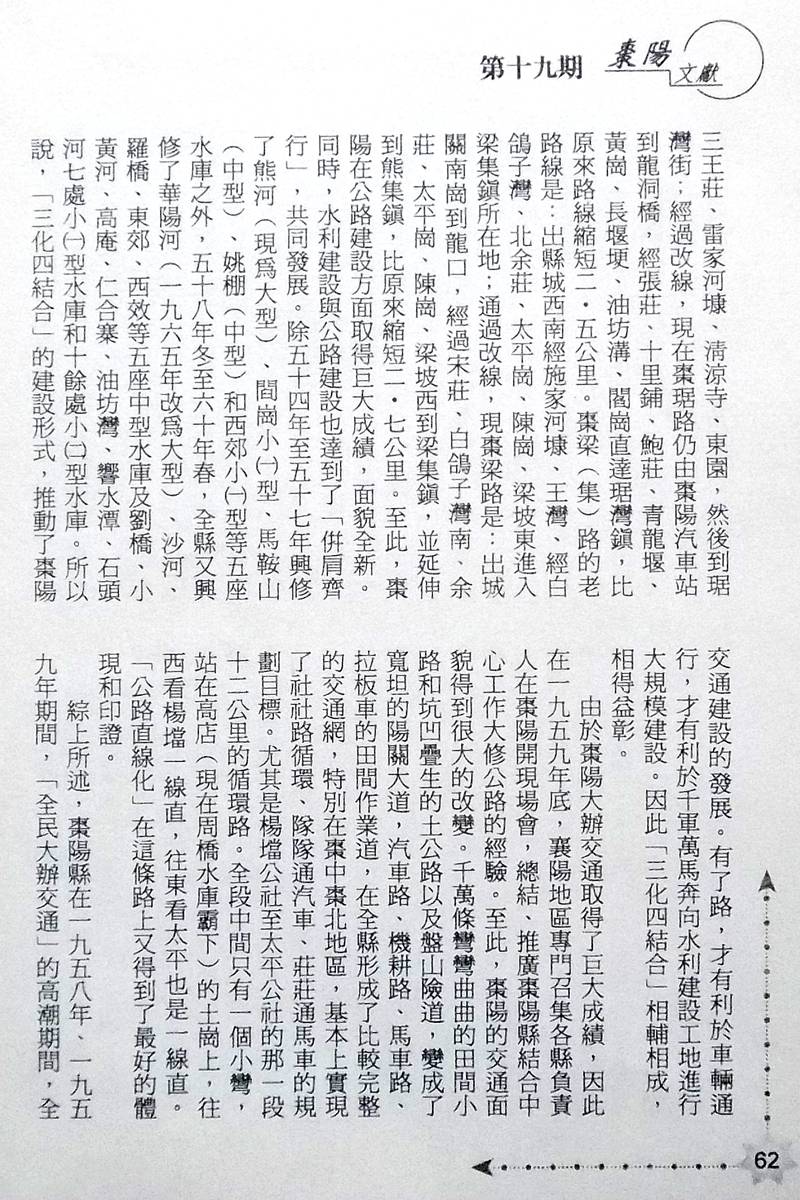 第十九期
棗陽
文獻
三王莊、雷家河壕、清涼寺、東園，然後到琚
灣街；經過改線，現在棗琚路仍由棗陽汽車站
到龍洞橋，經張莊、十里鋪、鮑莊、青龍堰、
黃崗、長堰埂、油坊溝、閻崗直達琚灣鎮，比
原來路線縮短二．五公里。棗梁（集）路的老
路線是：出縣城西南經施家河壕、王灣、經白
鴿子灣、北余莊、太平崗、陳崗、梁坡東進入
梁集鎮所在地；通過改線，現棗梁路是：出城
關南崗到龍口，經過宋莊、白鴿子灣南、余
莊、太平崗、陳崗、梁坡西到梁集鎮，並延伸
到熊集鎮，比原來縮短二．七公里。至此，棗
陽在公路建設方面取得巨大成績，面貌全新。
同時，水利建設與公路建設也達到了「併肩齊
行」，共同發展。除五十四年至五十七年興修
了熊河（現爲大型）、閻崗小㈠型、馬鞍山
（中型）、姚棚（中型）和西郊小㈠型等五座
水庫之外，五十八年冬至六十年春，全縣又興
修了華陽河（一九六五年改爲大型）、沙河、
羅橋、東郊、西效等五座中型水庫及劉橋、小
黃河、高庵、仁合寨、油坊灣、響水潭、石頭
河七處小㈠型水庫和十餘處小㈡型水庫。所以
說，「三化四結合」的建設形式，推動了棗陽
交通建設的發展。有了路，才有利於車輛通
行，才有利於千軍萬馬奔向水利建設工地進行
大規模建設。因此「三化四結合」相輔相成，
相得益彰。
由於棗陽大辦交通取得了巨大成績，因此
在一九五九年底，襄陽地區專門召集各縣負責
人在棗陽開現場會，總結、推廣棗陽縣結合中
心工作大修公路的經驗。至此，棗陽的交通面
貌得到很大的改變。千萬條彎彎曲曲的田間小
路和坑凹疊生的土公路以及盤山險道，變成了
寬坦的陽關大道，汽車路、機耕路、馬車路、
拉板車的田間作業道，在全縣形成了比較完整
的交通網，特別在棗中棗北地區，基本上實現
了社社路循環、隊隊通汽車、莊莊通馬車的規
劃目標。尤其是楊壋公社至太平公社的那一段
十二公里的循環路。全段中間只有一個小彎，
站在高店（現在周橋水庫霸下）的土崗上，往
西看楊壋一線直，往東看太平也是一線直。
「公路直線化」在這條路上又得到了最好的體
現和印證。
綜上所述，棗陽縣在一九五八年、一九五
九年期間，「全民大辦交通」的高潮期間，全
62